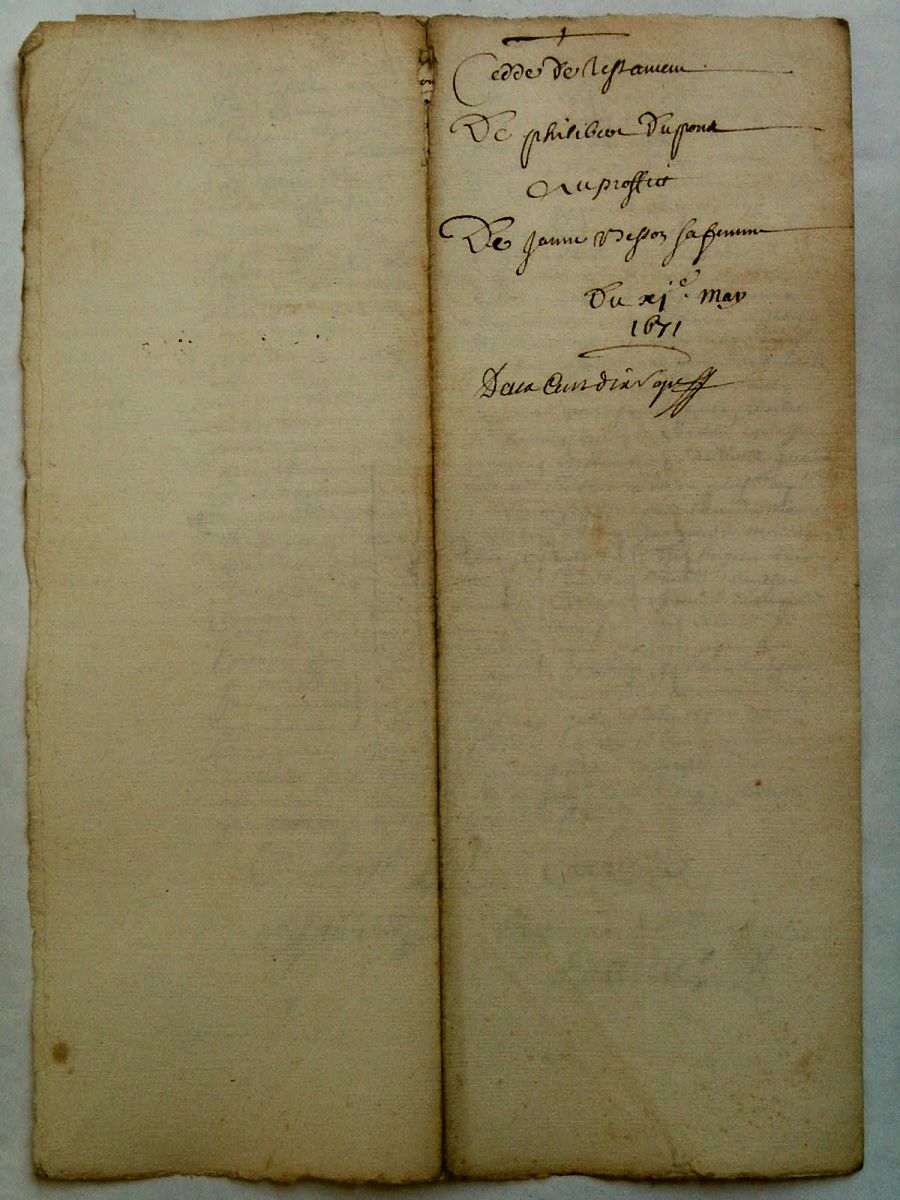 Cedde de testament
De philibert Dupont
Au proffict
De Janne Besson sa femme
Du xje. May
1671